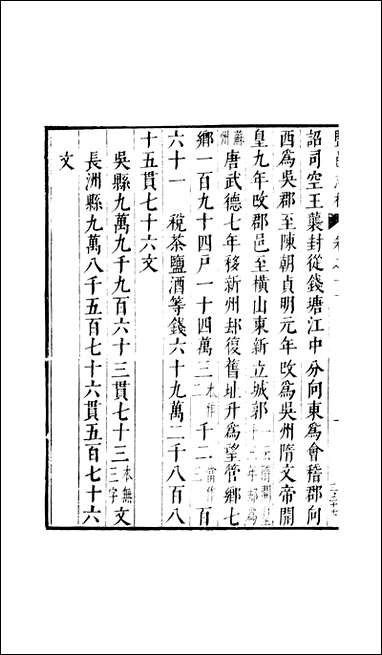 詔司空王襲封從錢塘江中分向東爲會稽郡向
西爲吳郡至陳朝貞明元年改爲吳州隋文帝開
皇九年改郡邑至橫山東新立城郭
州唐武德七年移新州却復舊址升爲望管鄉七
鄉一百九十四戸一十四萬三本作千二當作百
六十一 稅茶鹽酒等錢六十九萬二千八百八
十五貫七十六文
吳縣九萬九千九百六十三貫七十三本無三字文
長洲縣九萬八千五百七十六貫五百七十六
文